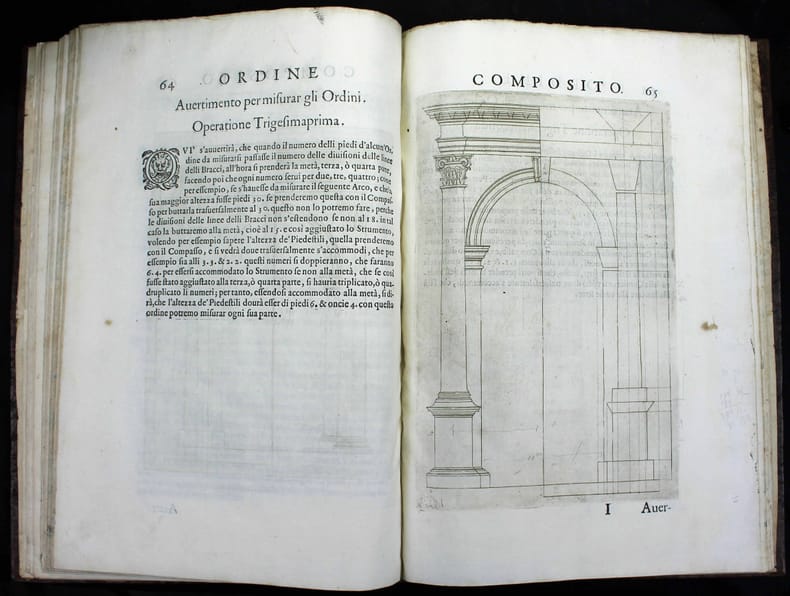 64 ORDINE
Auertimento per misurar gli Ordini.
Operatione Trigesimaprima.
QVI' s'auuertirà, che quando il numero delli piedi d'alcun'Or-
dine da misurarsi passasse il numero delle diuisioni delle linee
delli Bracci, all'hora si prenderà la metà, terza, ò quarta parte,
facendo poi che ogni numero serui per due, tre, quattro; come
per essempio, se s'hauesse da misurare il seguente Arco, e che la
sua maggior altezza fusse piedi 30. se prenderemo questa con il Compas-
so per buttarla trasuersalmente al 30. questo non lo potremo fare, perche
le diuisioni delle linee delli Bracci non s'estendono se non al 18. in tal
caso la buttaremo alla metà, cioè al 15. e così aggiustato lo Strumento,
volendo per essempio sapere l'altezza de' Piedestili, quella prenderemo
con il Compasso, e si vedrà doue trasuersalmente s'accommodi, che per
essempio sia alli 3. 3. & 2. 2. questi numeri si doppieranno, che faranno
6. 4. per essersi accommodato lo Strumento se non alla metà, che se così
fusse stato aggiustato alla terza, ò quarta parte, si hauria triplicato, ò qua-
druplicato li numeri; per tanto, essendosi accommodato alla metà, si di-
rà, che l'altezza de' Piedestili dourà esser di piedi 6. & oncie 4. con questo
ordine potremo misurar ogni sua parte.
COMPOSITO. 65
I Auer-